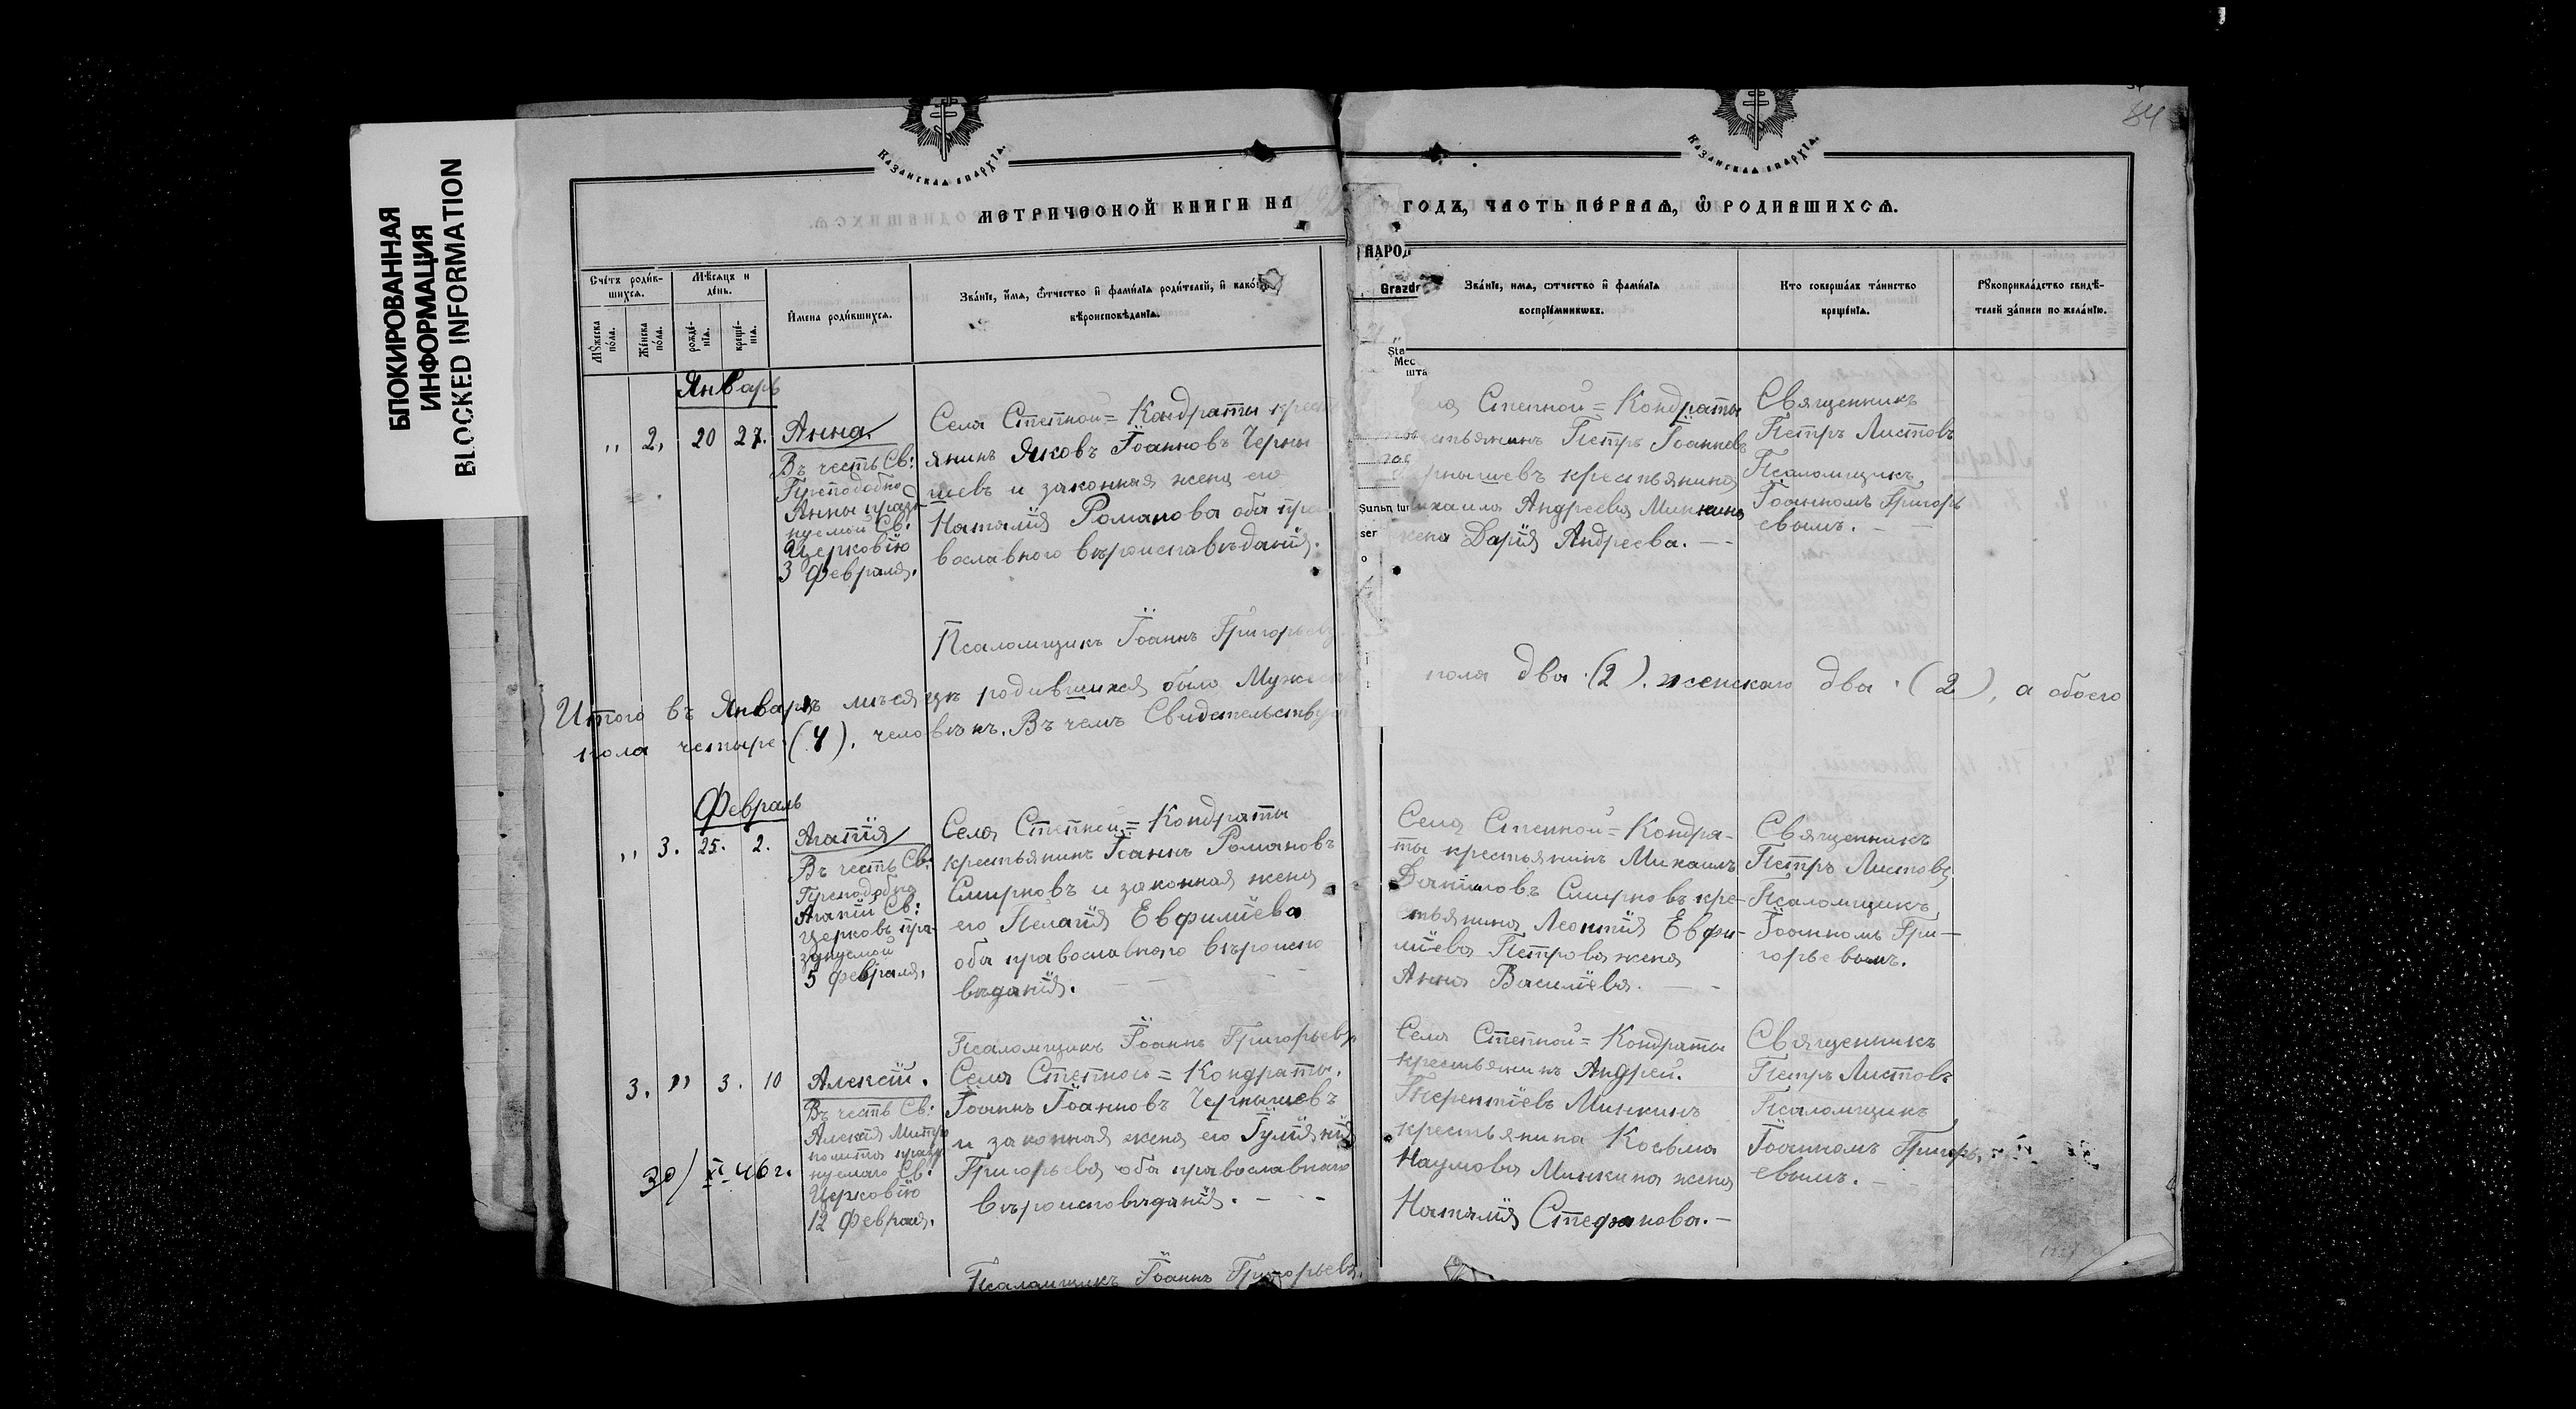 БЛОКИРОВАННАЯ
ИНФОРМАЦИЯ
BLOCKED INFORMATION
84
КАЗАНСКАѦ ЕПАРХЇА.
КАЗАНСКАѦ ЕПАРХЇА.
МЕТРИЧЕСКОЙ КНИГИ НА
ГОДЪ, ЧАСТЬ ПЕРВАѦ, Ѿ РОДИВШИХСѦ.
НАРОД
Grazdr
Счетъ родив-
шихсѧ.
Мѣсѧцъ и
день.
Имена родившихсѧ.
Званїе, имѧ, ѿтчество и фамилїа родителей, и какого
вѣроисповѣданїѧ.
Званїе, имѧ, отчество и фамилїѧ
воспрїемниковъ.
Кто совершалъ таинство
крещенїѧ.
Рꙋкоприкладство свидѣ-
телей записи по желанїю.
Мꙋжеска
пола.
Женска
пола.
рожде-
нїѧ.
креще-
нїѧ.
Январь
,, 2, 20 27.
Анна
Въ честь Св:
Преподобно
Анны празд
нуемой Св:
Церковію
3 Февраля.
Села Степной = Кондраты крест
янинъ Яковъ Іоанновъ Черны
шевъ и законная жена его
Наталія Романова оба пра
вославного вѣроисповѣданія.
Псаломщикъ Іоаннъ Григорьевъ
Степной = Кондраты
Петръ Іоанновъ
рнышевъ крестьянина
ихаила Андреева Минкина
жена Дарія Андреева. - -
Священникъ
Петръ Листовъ
Псаломщикъ
Іоанномъ Григорь
евымъ. -
Итого въ Январѣ мѣсяцѣ родившихся было Мужес
пола два (2). женскаго два (2), а обоего
пола четыре (4). человѣкъ. Въ чемъ Свидетельству
Февраль
,, 3. 25. 2.
Агапія
Въ честь Св:
Преподобна
Агапіи Св:
Церковъ пра-
зднуемой
5 февраля.
Села Степной = Кондраты
крестьянинъ Іоаннъ Романовъ
Смирновъ и законная жена
его Пелагія Евфиміева
оба православного вѣроиспо
вѣданія. - -
Псаломщикъ Іоаннъ Григорьевъ
Села Степной = Кондра-
ты крестьянинъ Михаилъ
Даниловъ Смирновъ кре-
стьянина Леонтія Евфи-
міева Петрова жена
Анна Василіева. - -
Священникъ
Петръ Листовъ
Псаломщикъ
Іоанномъ Гри-
горьевымъ.
3. ,, 3. 10
Алексій.
Въ честь Св:
Алексія Митро
полита празд
нуемаго Св:
Церковію
12 Февраля.
30/XI 46 г.
Села Степной = Кондраты.
Іоаннъ Іоанновъ Чернышевъ
и законная жена его Іуліанія
Григорьева оба православнаго
вѣроисповѣданія. - -
Псаломщикъ Іоаннъ Григорьевъ.
Села Степной = Кондраты
крестьянинъ Андрей.
Терентіевъ Минкинъ
крестьянина Косьма
Наумова Минкина жена
Наталія Стефанова. -
Священникъ
Петръ Листовъ
Псаломщикъ
Іоанномъ Григорь
евымъ. -